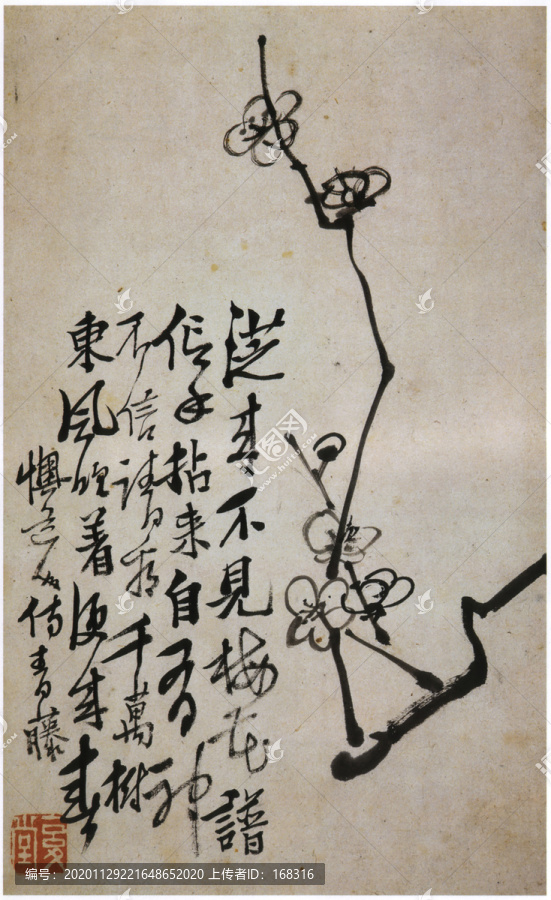 從來不見梅花譜
信手拈来自有神
不信請看千萬樹
東風吹着便成春
懊道人 青藤
复堂
编号: 20201129221648652020 上传者ID: 168316